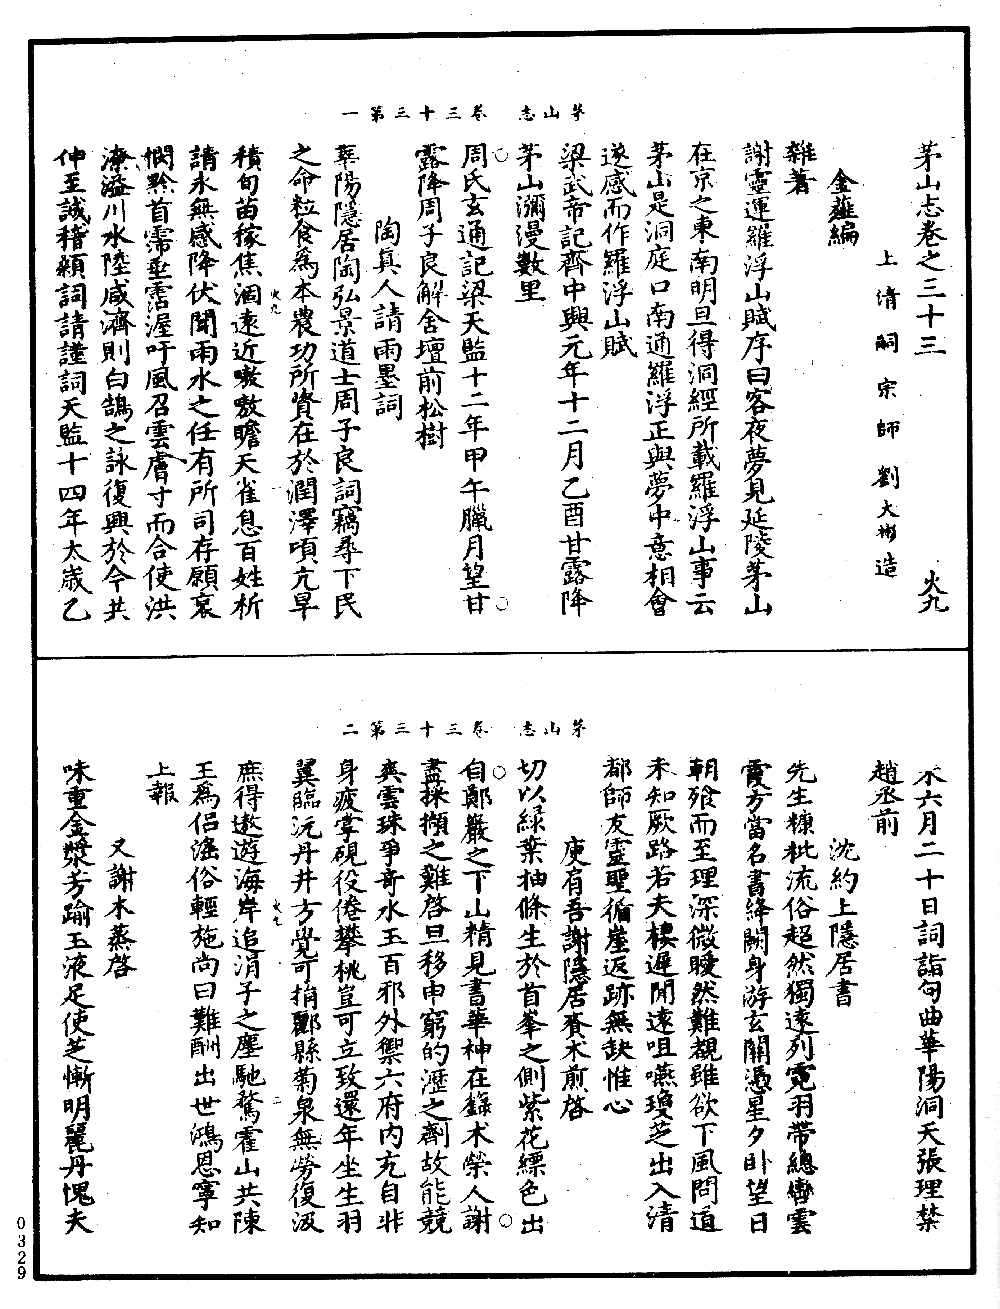 茅山志　卷三十三第一
茅山志卷之三十三　火九
上清嗣宗師劉大彬造
金薤編
雜著
謝靈運羅浮山賦序曰客夜夢見延陵茅山
在京之東南明旦得洞經所載羅浮山事云
茅山是洞庭口南通羅浮正與夢中意相會
遂感而作羅浮山賦
梁武帝記齊中興元年十二月乙酉甘露降
茅山瀰漫數里
周氏玄通記梁天監十二年甲午臘月望甘
露降周子良解舍壇前松樹
陶真人請雨墨詞
華陽隱居陶弘景道士周子良詞竊尋下民
之命粒食為本農功所資在於潤澤頃亢旱
積旬苗稼焦涸遠近嗷嗷瞻天雀息百姓祈
請永無感降伏聞雨水之任有所司存願哀
憫黔首霈垂霑渥吁風召雲膚寸而合使洪
潦溢川水陸咸濟則白鵠之詠復興於今共
伸至誠稽顙詞請謹詞天監十四年太歲乙
火九
茅山志　卷三十三第二
未六月二十日詞詣句曲華陽洞天張理禁
趙丞前
沈約上隱居書
先生糠粃流俗超然獨遠列霓羽帶總轡雲
霞方當名書絳闕身游玄關憑星夕卧望日
朝飱而至理深微曖然難覩雖欲下風問道
未知厥路若夫棲遲閒遠咀嚥瓊芝出入清
都師友靈聖循崖返跡無缺惟心
庾肩吾謝隱居賚朮煎啓
切以緑葉抽條生於首峯之側紫花縹色出
自鄭巖之下山精見書華神在錄朮榮人謝
盡採擷之難啓旦移申窮的瀝之劑故能競
爽雲珠爭奇水玉百邪外禦六府內充自非
身疲掌硯役倦攀桃豈可立致還年坐生羽
翼臨沅丹井方覺可捐酈縣菊泉無勞復汲
庶得遨遊海岸追涓子之塵馳騖霍山共陳
王為侶滛俗輕施尚曰難酬出世鴻恩寧知
上報
又謝朮蒸啓
味重金漿芳踰玉液足使芝慚明麗丹愧夫
火九　二
0329